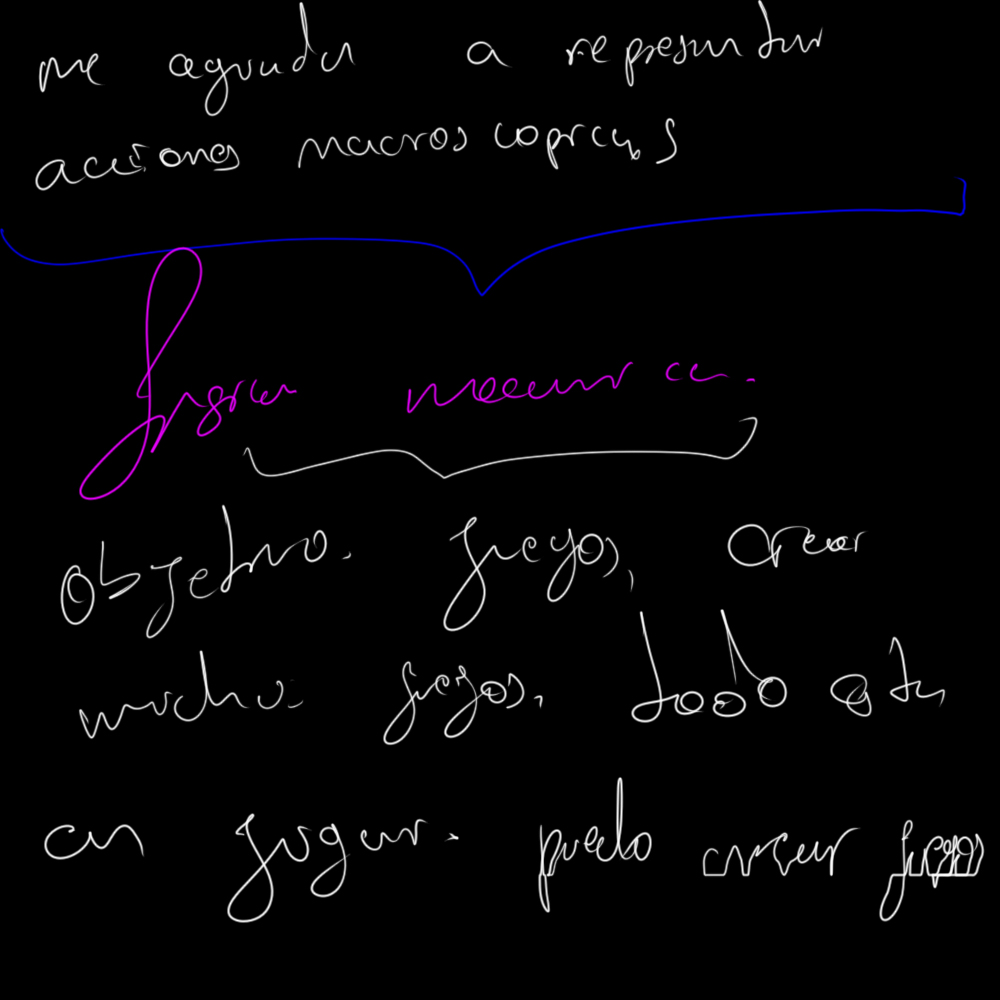 me ayuda a representar
acciones macroscopicas
fisica mecanica.
Objetivo. juegos, crear
mucho. juegos, todo esta
en jugar. puedo crear juegos